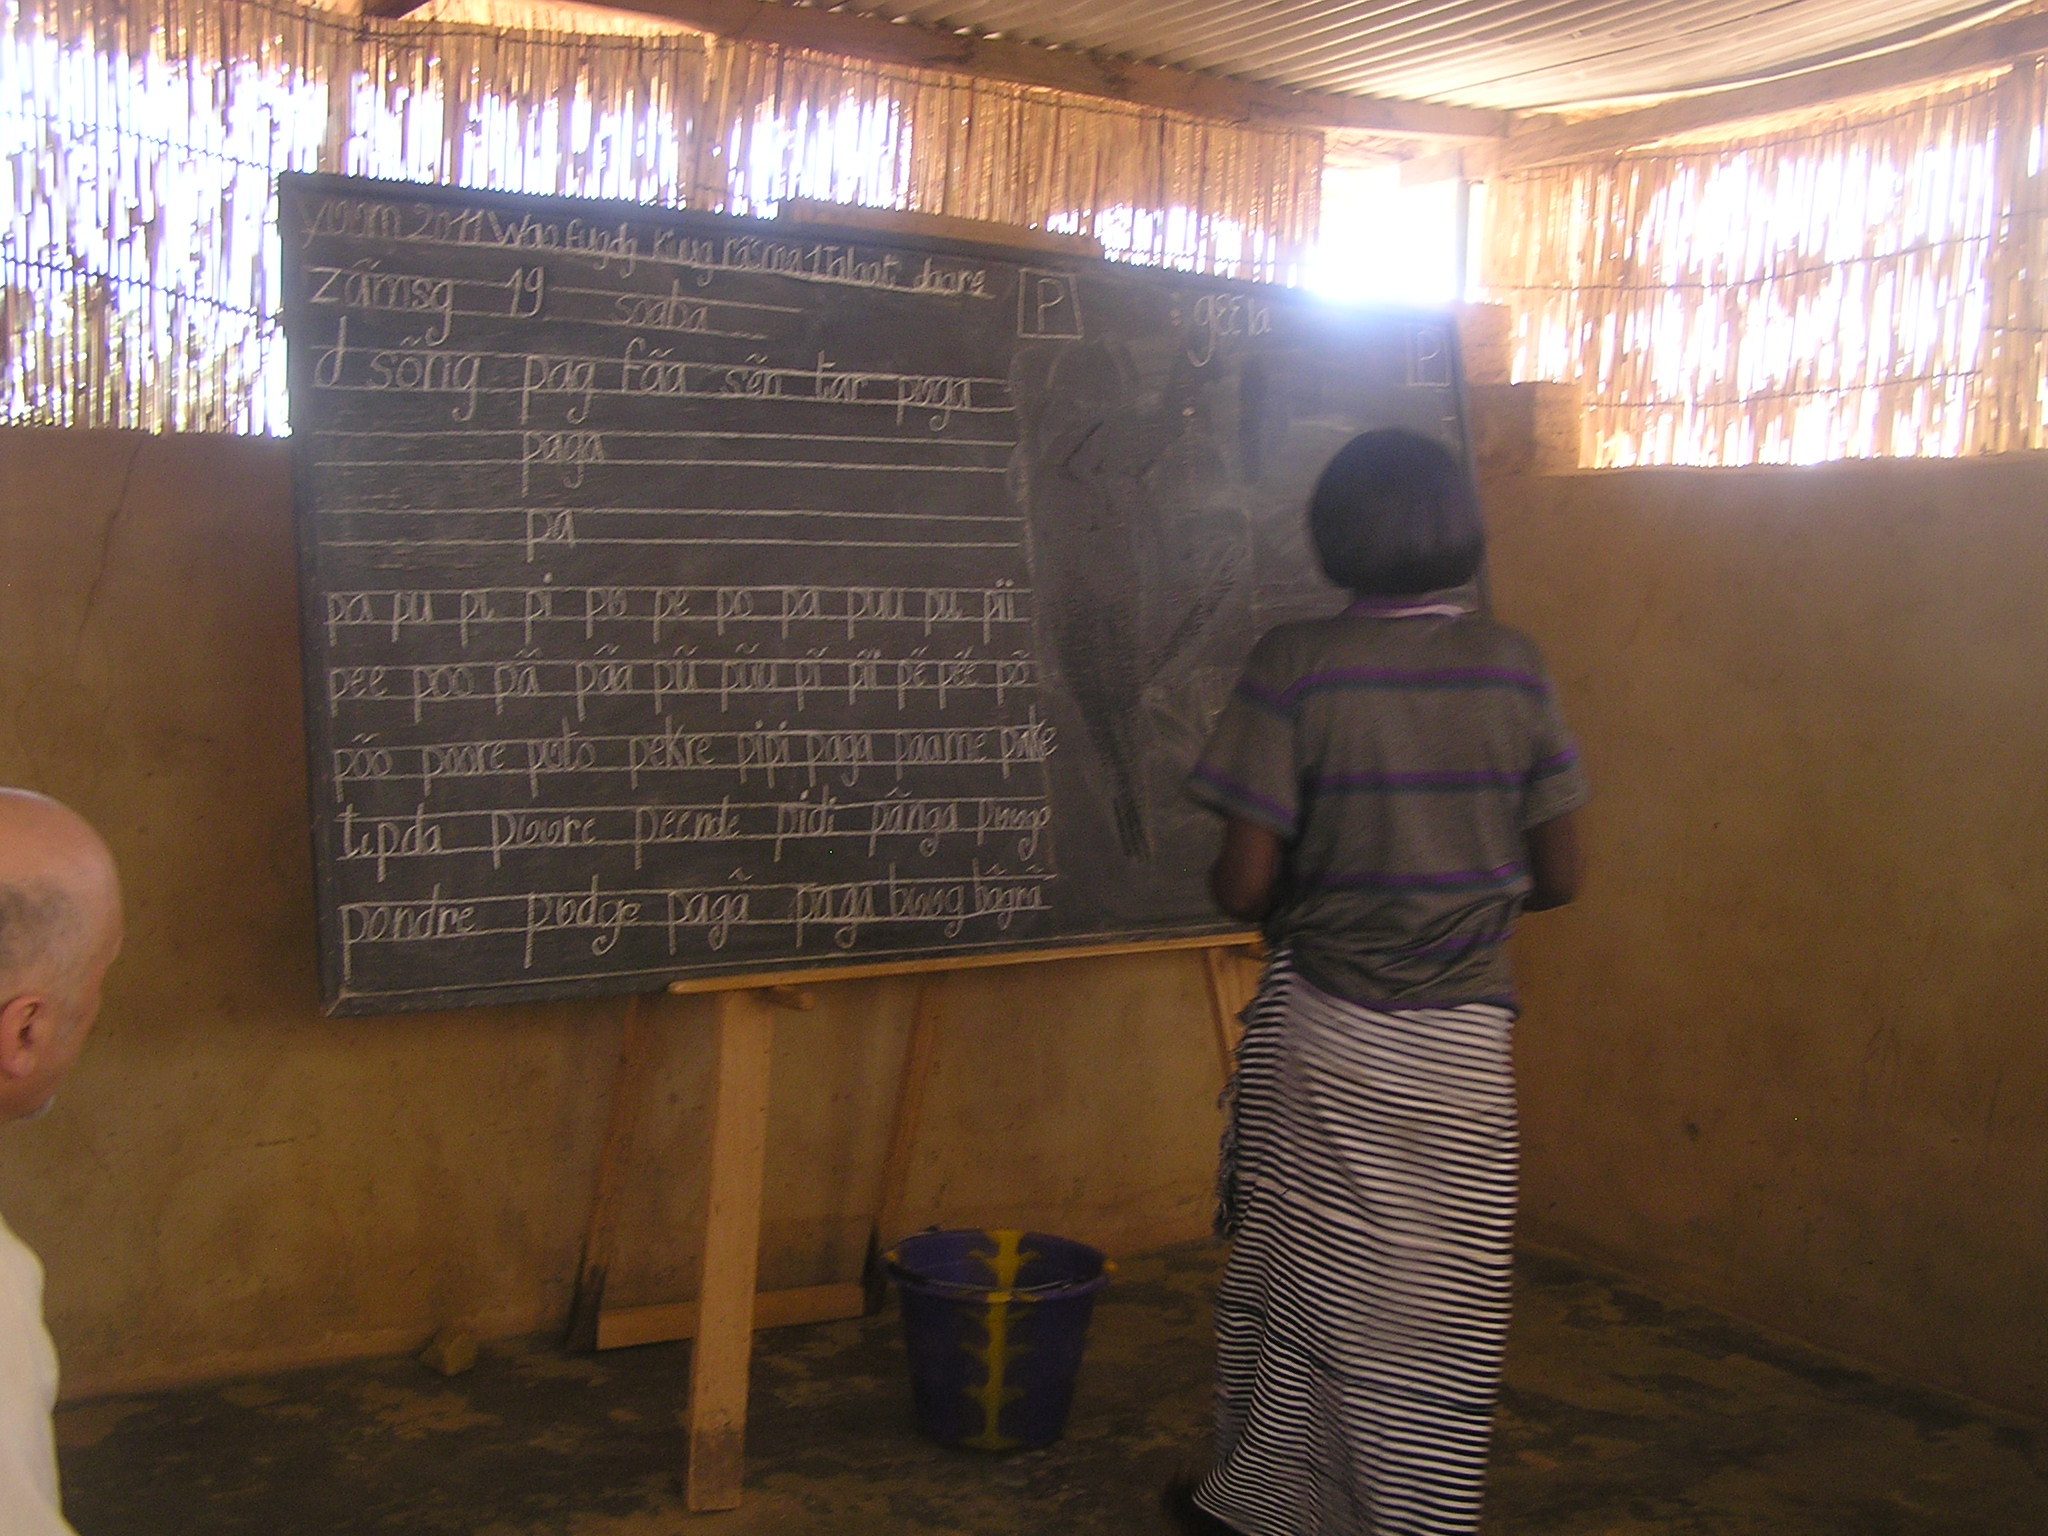 yʋʋm 2011 Wao fugdg kiuug rasma 1 Talaat daare
zãmsg 19 soaba
P
geela
P
d sõng pag fãa sẽn tar paga
paga
pa
pa pu pɩ pi pʋ pe po pa puu pu pii
pee poo pã pãa pũ pũu pĩ pĩi pẽ pẽe põ
põo poore poto pekre pipi paga paame
tɩpda pʋʋre peende pidi pãnga pʋʋgo
pondre pʋdge pagã paga bʋʋg bãgrã